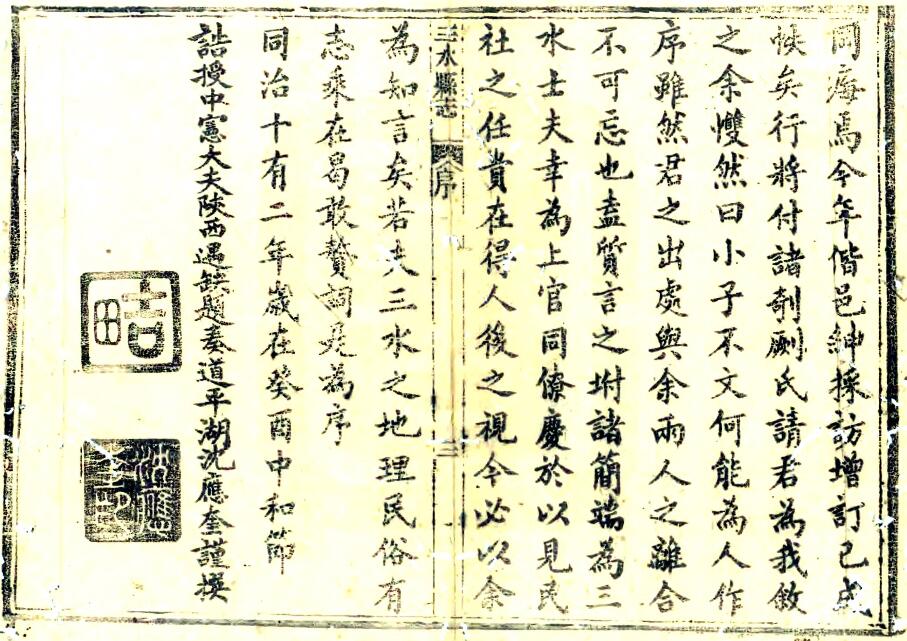 同寅焉今年偕邑紳採訪增訂已成
帙矣行將付諸剞劂氏請君為我敘
之余戄然曰小子不文何能為人作
序雖然君之出處與余兩人之離合
不可忘也盍質言之坿諸簡端為三
水士夫幸為上官同僚慶於以見民
社之任貴在得人後之視今必以余
三水縣志 序 三
為知言矣若夫三水之地理民俗有
志乘在曷敢贅詞是為序
同治十有二年歲在癸酉中和節
誥授中憲大夫陝西遇缺題奏道平湖沈應奎謹撰
吉田
沈應奎印